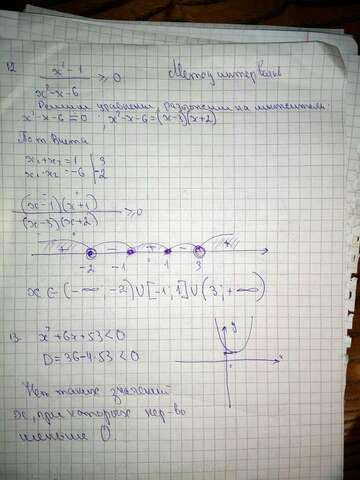 12. x² - 1 / x² - x - 6 ≥ 0 Метод интервалов
Решим уравнение, разложим на множители
x² - x - 6 = 0 ; x² - x - 6 = (x-3)(x+2)
По т. Виета
x₁ + x₂ = 1 | 3
x₁ · x₂ = -6 | -2
(x-1)(x+1) / (x-3)(x+2) ≥ 0
+ - + - +
-2 -1 1 3
x ∈ (-∞; -2) ∪ [-1; 1] ∪ (3; +∞)
13. x² + 6x + 53 < 0
D = 36 - 4·53 < 0
y
x
Нет таких значений
x, при которых нер-во
меньше 0.